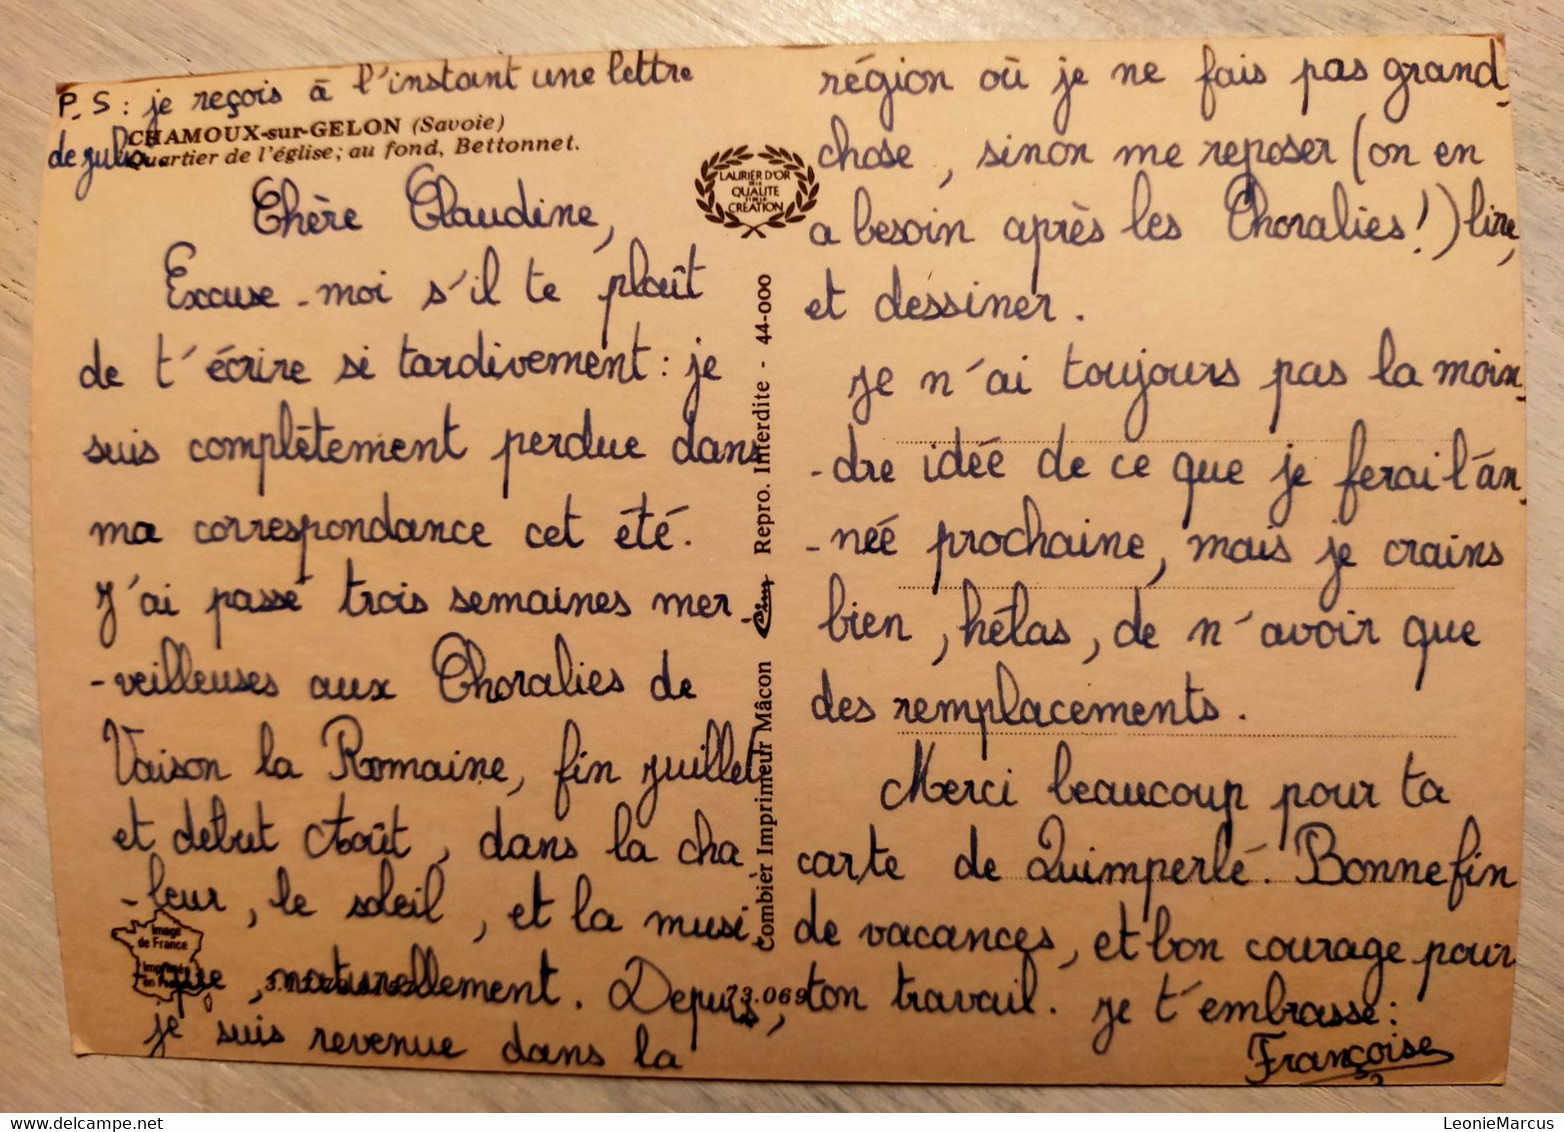 P.S : je reçois à l'instant une lettre
de
CHAMOUX-sur-GELON (Savoie)
Quartier de l'église; au fond, Bettonnet.
Chère Claudine,
Excuse-moi s'il te plaît
de t'écrire si tardivement : je
suis complètement perdue dans
ma correspondance cet été.
J'ai passé trois semaines mer-
-veilleuses aux Choralies de
Vaison la Romaine, fin juillet
et début Août, dans la cha
-leur, le soleil, et la musi-
-que, naturellement. Depuis,
je suis revenue dans la
LAURIER D'OR
DE LA
QUALITE
ET DE LA
CREATION
Combier Imprimeur Mâcon Cim Repro. Interdite - 44-000
Image
de France
Imprimé
en France
73.069
région où je ne fais pas grand-
chose, sinon me reposer (on en
a besoin après les Choralies !) lire,
et dessiner.
Je n'ai toujours pas la moin-
-dre idée de ce que je ferai l'an-
-née prochaine, mais je crains
bien, hélas, de n'avoir que
des remplacements.
Merci beaucoup pour ta
carte de Quimperlé. Bonne fin
de vacances, et bon courage pour
ton travail. Je t'embrasse :
Françoise
LeonieMarcus